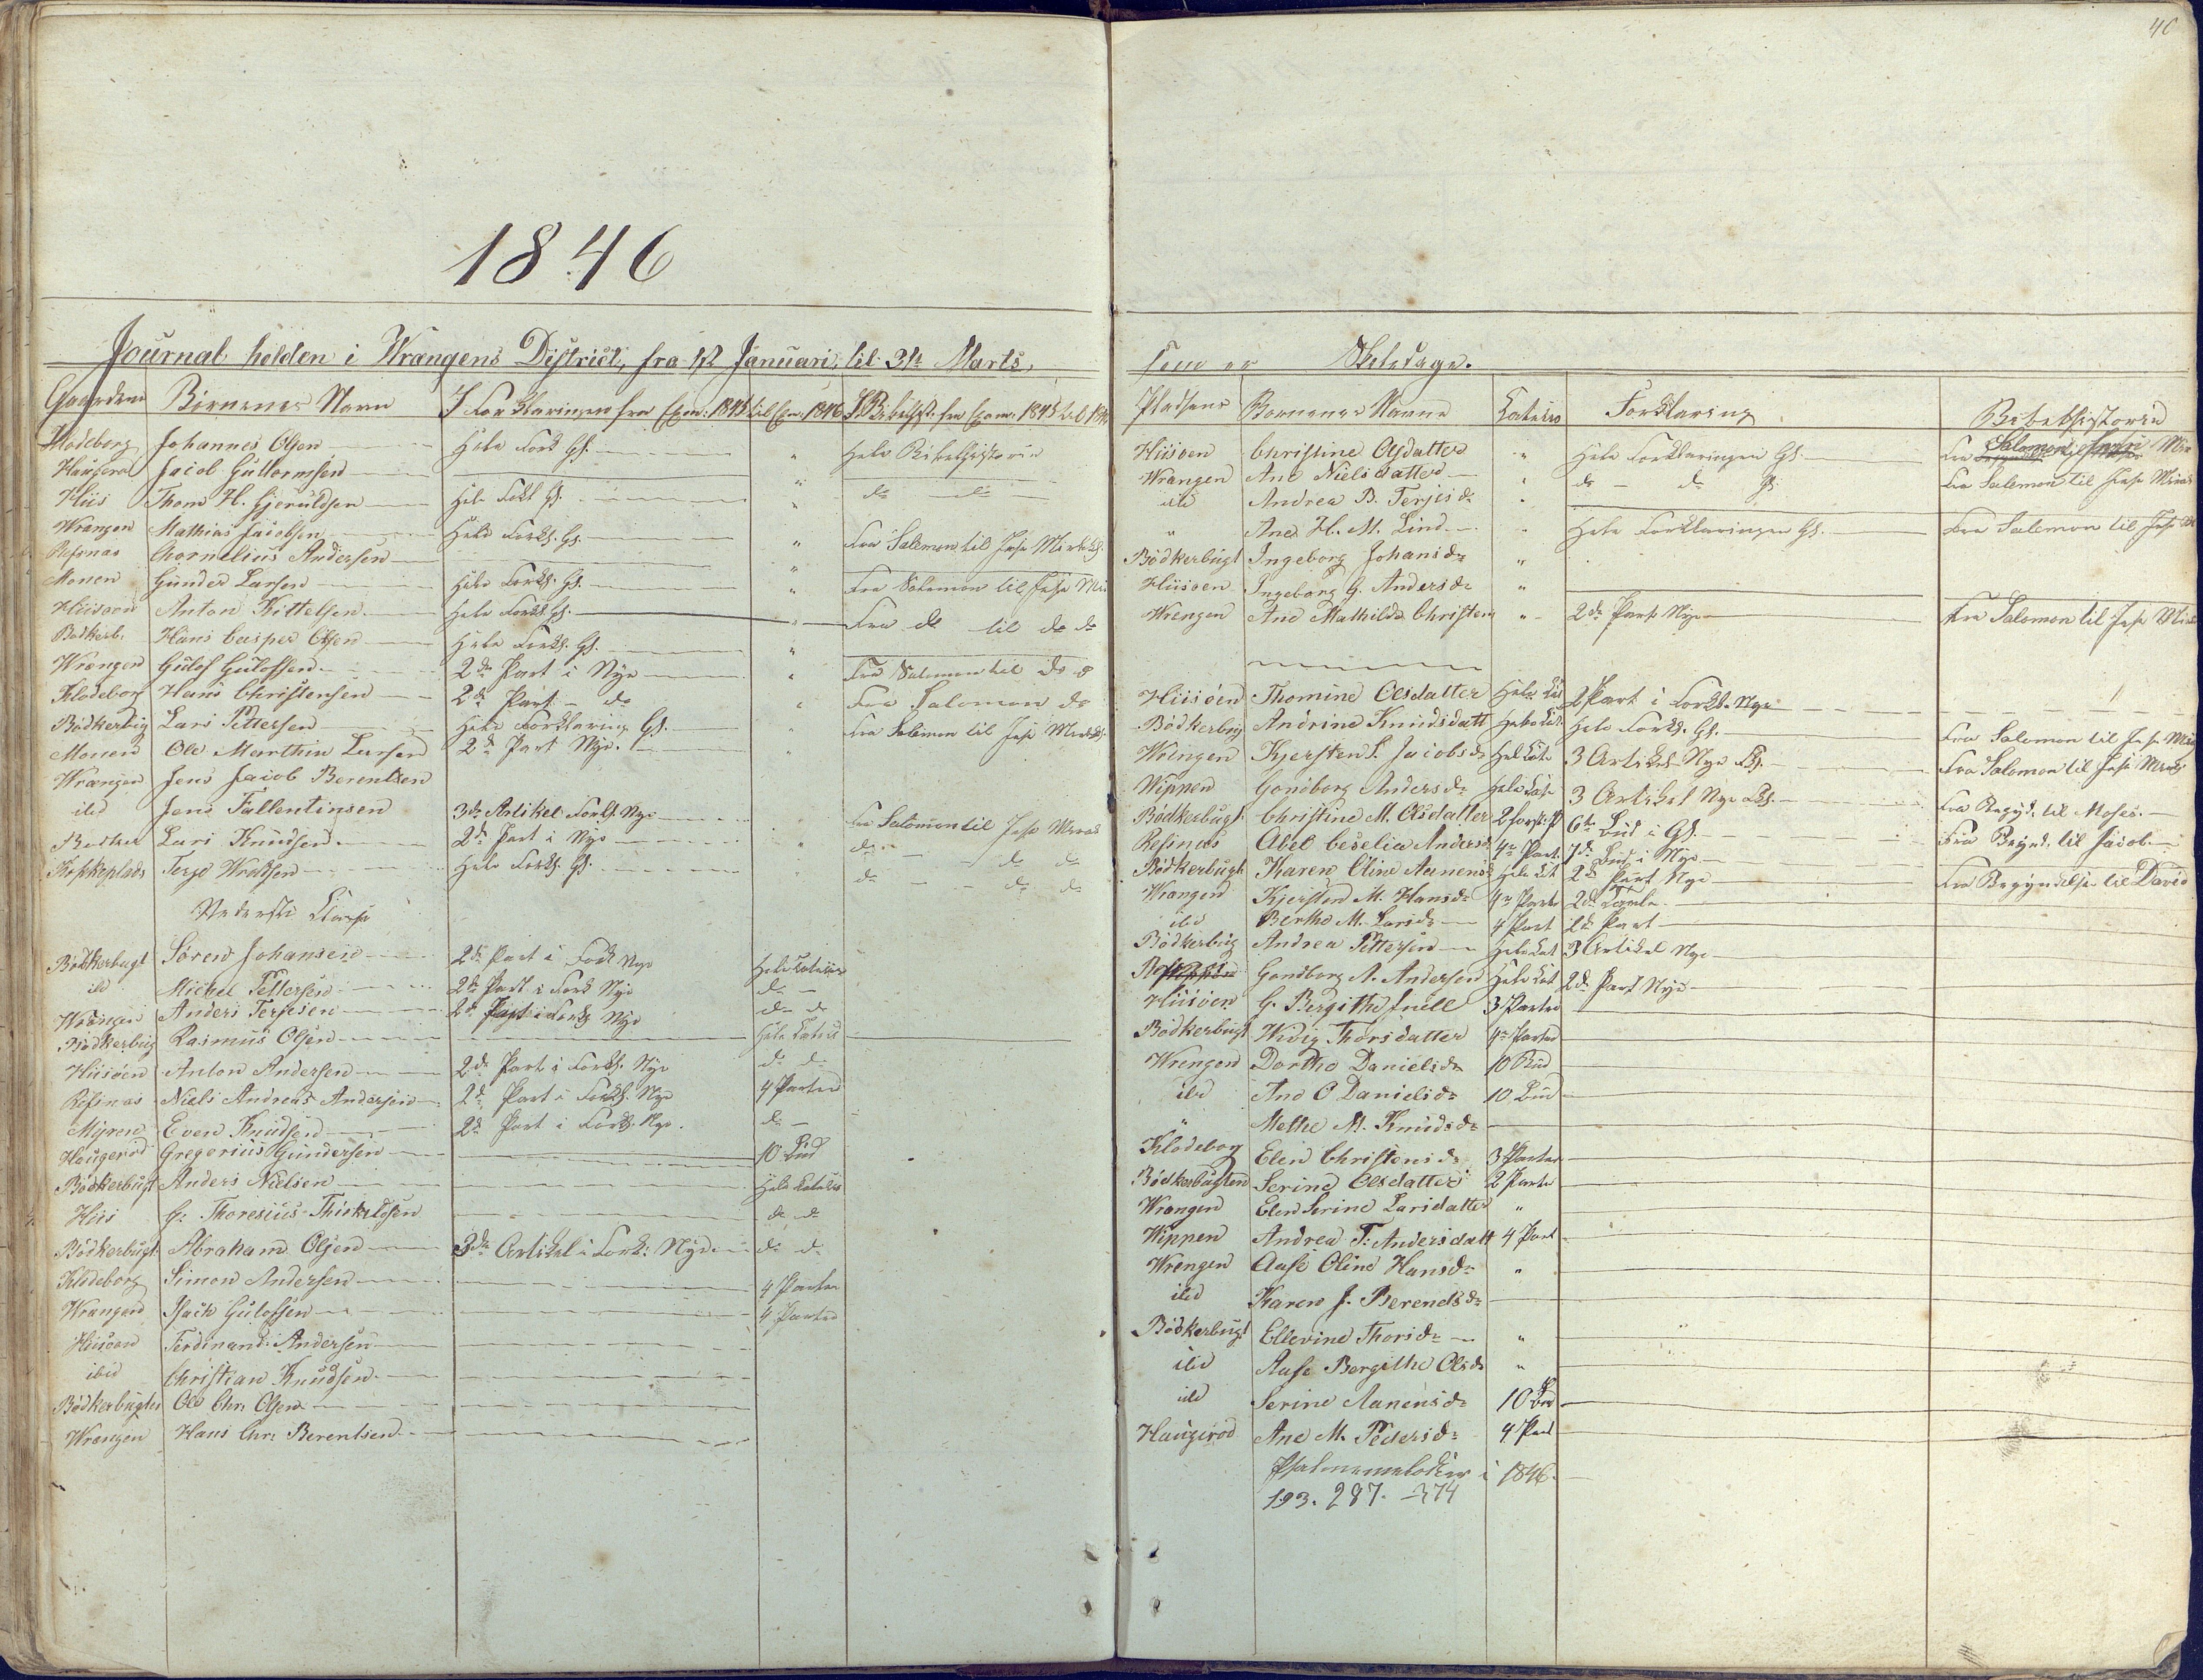 1846
Journal holden i Wrangens District, fra 12 Januari, til 31te Marts,
Gaardene Børnenes Navn I Forklaringen fra Exm: 1845 til Ex: 1846 I Bibelhist: fra Exam: 1845 til 1846
Klodeborg Johannes Olsen Hele Fork Gl. " Hele Bibelhistorie
Haugerod Jacob Guttormsen " do do
Hiis Thom H. Gjeruldsen Hele Fork Gl. "
Wrangen Mathias Jacobsen Hele Forkl. Gl. " Fra Salomon til Jesu Mirakl.
Refsnæs Chornelius Andersen "
Monen Gunder Larsen Hele Forkl. Gl. " Fra Salomon til Jesu Mir
Hiisøen Anton Kittelsen Hele Forkl. Gl. " Fra do til do do
Bødkerb. Hans Casper Olsen Hele Forkl. Gl. "
Wrangen Gulof Gulofsen 2de Part i Nye " Fra Salomon til do do
Klodeborg Hans Christensen 2de Part - do " Fra Salomon do
Bødkerbug Lars Pettersen Hele Forklaring Gl. Fra Salomon til Jesu Mirakl.
Monen Ole Marthin Larsen 2de Part Nye. "
Wrangen Jens Jacob Berentsen
ibd Jens Fallentinsen 3de Artikel Forkl. Nye " Fra Salomon til Jesu Mirak
Bødker Lars Knudsen 2de Part i Nye " do - do do
Terje Hele Forkl. Gl. " do - do do
Nederste Classe
Bødkerbugt Søren Johansen 2de Part i Fork Nye Hele Catechis
ibd Michel Pettersen 2de Part i Fork Nye do -
Wrangen Anders Terjesen 2de Part i Forkl Nye do do
Bødkerbug Rasmus Olsen Hele Catechis
Hiisøen Anton Andersen 2de Part i Forkl. Nye do do
Refsnæs Niels Andreas Andersen 2de Part i Forkl. Nye 4 Parter
Myren Even Knudsen 2de Part i Forkl. Nye. do -
Haugerød Gregorius Gundersen 10 Bud
Bødkerbugt Anders Nielsen Hele Catechis
Hiis G: Thoresius Thorkildsen do do
Bødkerbugt Abraham Olsen 3de Artikel i Fork: Nye do do
Klodeborg Simon Andersen 4 Parter
Wrangen Isach Gulofsen 4 Parter
Hiisøen Ferdinand Andersen
ibid Christian Knudsen
Bødkerbugten Ole Chr: Olsen
Wrangen Hans Chr: Berentsen
40
som er Skoledage.
Pladsens Bornenes Navne Catechis Forklaring Bibelhistorie
Hiisøen Christine Olsdatter " Hele Forklaringen Gl. Fra Salomon
Wrangen Ane Nielsdatter " do - do Gl. Fra Salomon til Jesu Mirak
ibd Andrea B. Terjesd: "
" Ane H. M. Lind " Hele Forklaringen Gl. Fra Salomon til Jesu
Bødkerbugt Ingeborg Johansd: "
Hiisøen Ingeborg G. Andersd: "
Wrangen Ane Mathilde Christens " 2de Part Nye Fra Salomon til Jesu Mir
Hiisøen Thomine Olsdatter Hele Cat 2 Part i Forkl. Nye "
Bødkerbug Andrine Knudsdatt Hele Cat Hele Forkl. Gl. Fra Salomon til Jesu Mir
Wrangen Kjersten S. Jacobsd: Hel Cate 3 Artikel Nye Fkl. Fra Salomon til Jesu Mirak
Wippen Gondborg Andersd: Hele Cate 3 Artikel Nye Fkl.
Bødkerbugt Christine M. Olsdatter 2 første P 6te Bud i Gl. Fra Begynd. til Moses.
Refsnæs Abel Ceselia Andersd 4re Part. 7de Bud i Nye Fra Begynd. til Jacob.
Bødkerbugt Karen Oline Aanens: Hele Cat 2de Part Nye Fra Begyndelse til David
Wrangen Kjersten M. Hansd: 4re Parter 2de Part Gamle
ibd Berthe M. Larsd: 4 Part 2de Part
Bødkerbug Andrea Pettersen Hele Cat 3 Artikel Nye
Gondborg A. Andersen Hele Cat 2de Part Nye
Hiisøen G. Bergithe Juell 3 Parter
Bødkerbugt Widig Thorsdatter 4re Parter
Wrangen Dorthe Danielsd: 10 Bud
ibd Ane O Danielsd: 10 Bud
" Methe M. Knudsd:
Klodeborg Elen Christensd: 3 Parter
Bødkerbugten Serine Olsdatter 2 Parter
Wrangen Elen Serine Larsdatter "
Wippen Andrea T: Andersdatt 4 Part
Wrangen Aase Oline Hansd: "
ibd Karen J. Berendsd:
Bødkerbugt Ellevine Thorsd: "
ibd Aase Bergithe Olsd: "
ibd Serine Aanensd: 10 Bud
Haugerød Ane M. Pedersd: 4 Part
Psalmemelodier i 1846.
193. 287. 374